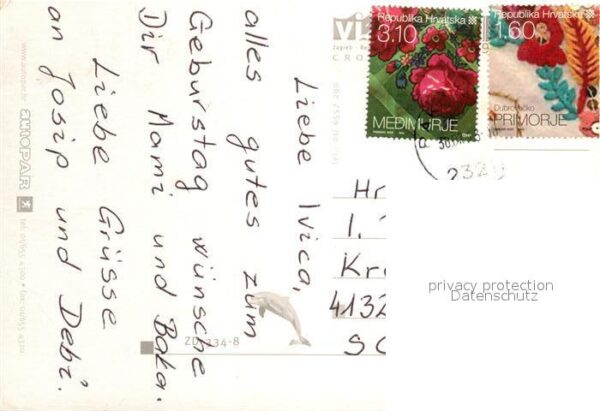 Liebe Ivica,
alles gutes zum
Geburstag wünsche
Dir Mami und Baka.
Liebe Grüsse
an Josip und Debi.
Republika Hrvatska
3.10
MEĐIMURJE
Republika Hrvatska
1.60
Dubrovačko
PRIMORJE
232
Hr
1.
Kr
4132
privacy protection
Datenschutz
ZD-334-8
autoPAR